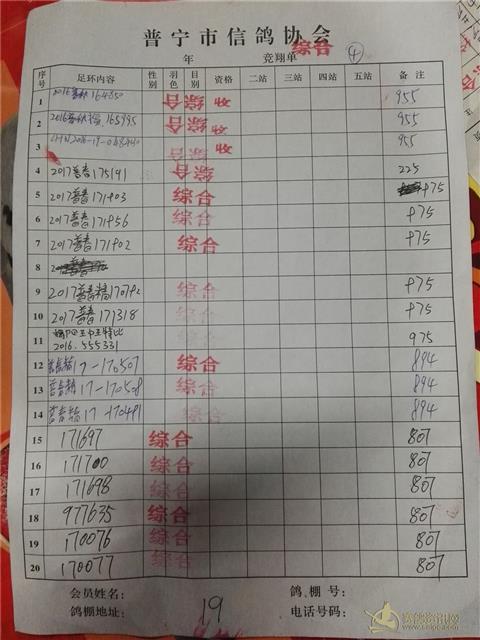 普宁市信鸽协会
年 竞翔单 综合 ④
序号 足环内容 性别 羽色 目别 资格 二站 三站 四站 五站 备注
1 2016普 164850 综合 收 955
2 2016普 165995 综合 收 955
3 2016-19-0682440 综合 收 955
4 2017普春175191 综合 225
5 2017普春171903 综合 975
6 2017普春171956 综合 975
7 2017普春171902 综合 975
8
9 2017普春精170792 综合 975
10 2017普春171318 综合 975
11 2016.555331 975
12 普春精17-170507 综合 894
13 普春精17-170508 综合 894
14 普春精17-170491 综合 894
15 171697 综合 807
16 171700 综合 807
17 171698 综合 807
18 977635 综合 807
19 170076 综合 807
20 170077 综合 807
会员姓名: 鸽棚号:
鸽棚地址: 19 电话号码:
赛鸽资讯网